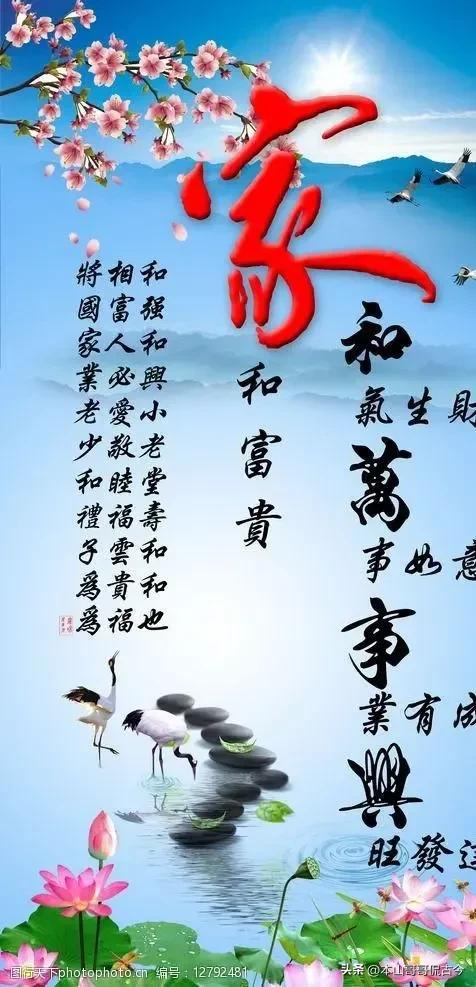 家
和
氣生財
萬
事如意
事
業有成
興
旺發達
和富貴
和强和興小老堂壽和和也
相富人必愛敬睦福雲貴福
將國家業老少和禮子爲爲
图行天下 PHOTOPHOTO.CN 编号：12792481
头条 @本山哥哥侃古今